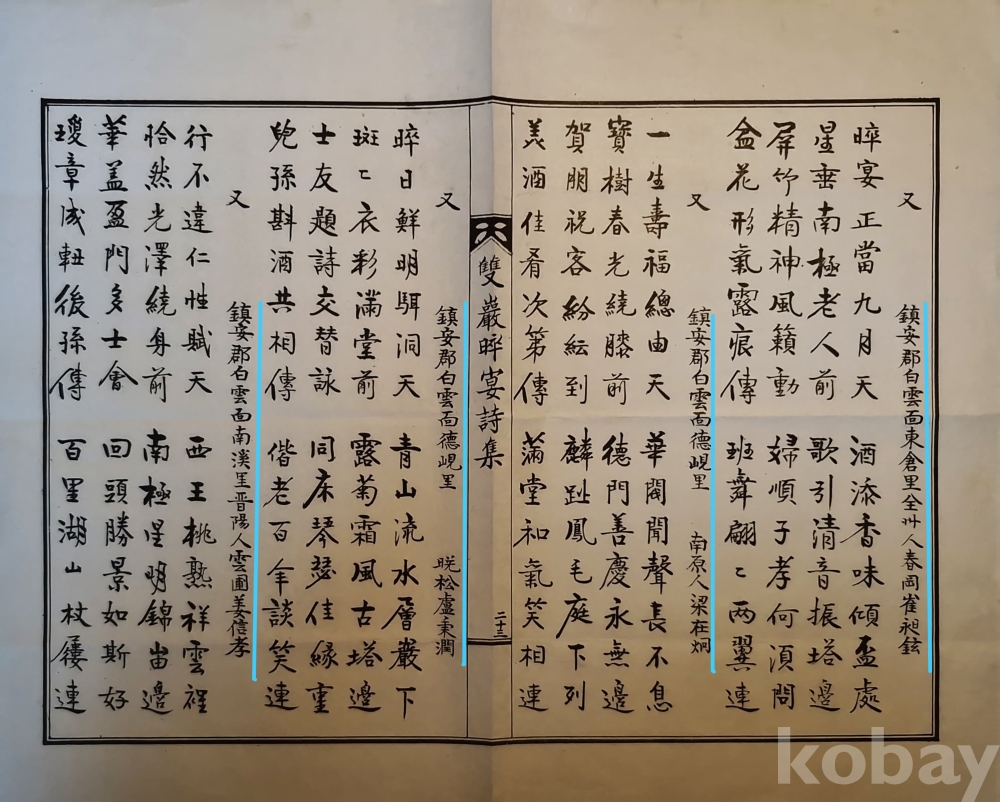 又
鎮安郡白雲面東倉里全州人春岡崔昶鉉
晬宴正當九月天 酒添香味傾盃處
星垂南極老人前 歌引清音振塔邊
屏竹精神風籟動 婦順子孝何須問
盆花形氣露痕傳 班舞翩〻兩翼連
又
鎮安郡白雲面德峴里 南原人梁在炯
一生壽福總由天 華閥聞聲長不息
寶樹春光繞膝前 德門善慶永無邊
賀朋祝客紛紜到 麟趾鳳毛庭下列
美酒佳肴次第傳 滿堂和氣笑相連
雙巖晬宴詩集
二十三
又
鎮安郡白雲面德峴里 晩松盧秉潤
晬日鮮明駬洞天 青山流水層巖下
斑〻衣彩滿堂前 露菊霜風古塔邊
士友題詩交替詠 同床琴瑟佳緣重
兒孫斟酒共相傳 偕老百年談笑連
又
鎮安郡白雲面南溪里晋陽人雲圃姜信孝
行不違仁性賦天 西王桃熟祥雲裡
恰然光澤繞身前 南極星明錦畓邊
華盖盈門多士會 回頭勝景如斯好
瓊章成軸後孫傳 百里湖山杖屨連
kobay